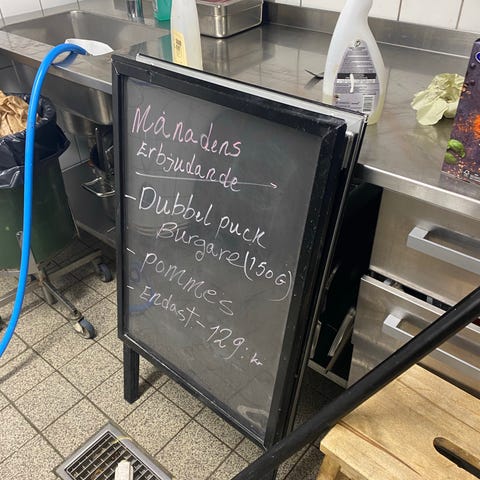 Månadens
Erbjudande
- Dubbel puck
Burgare (150G)
- pommes
- Endast:- 129:kr